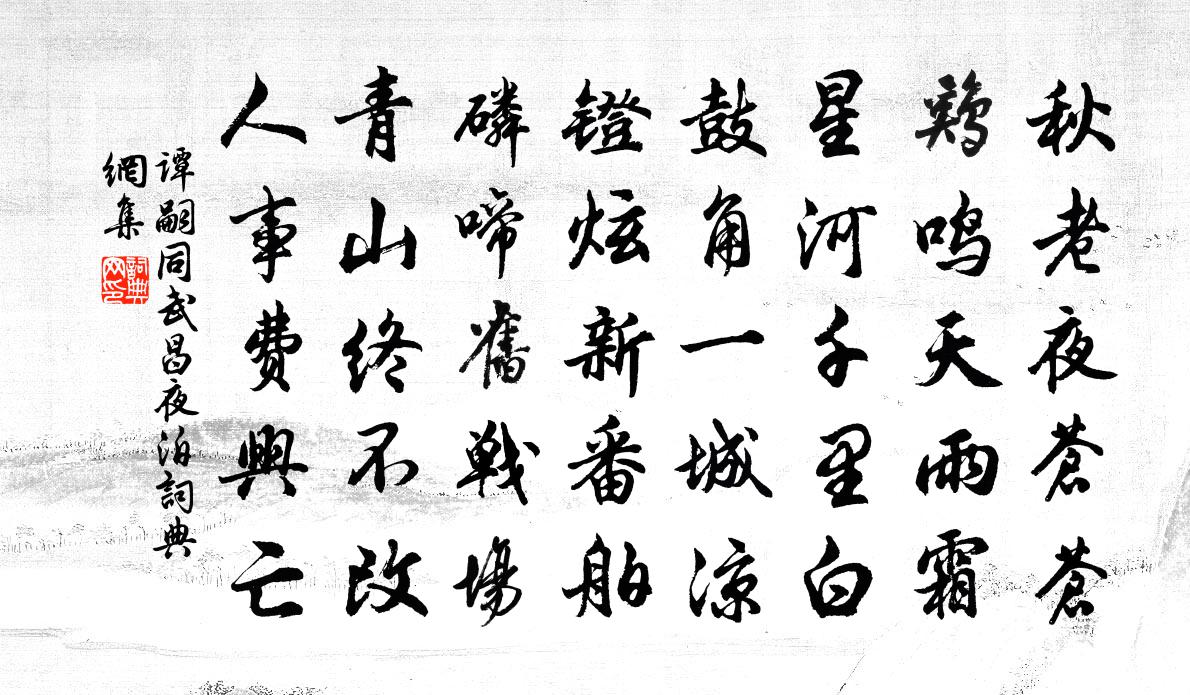 秋老夜蒼蒼
鷄鳴天雨霜
星河千里白
鼓角一城涼
鐙炫新番舶
磷啼舊戰場
青山终不改
人事費興亡
谭嗣同武昌夜泊詞典
網集
詞典
网印